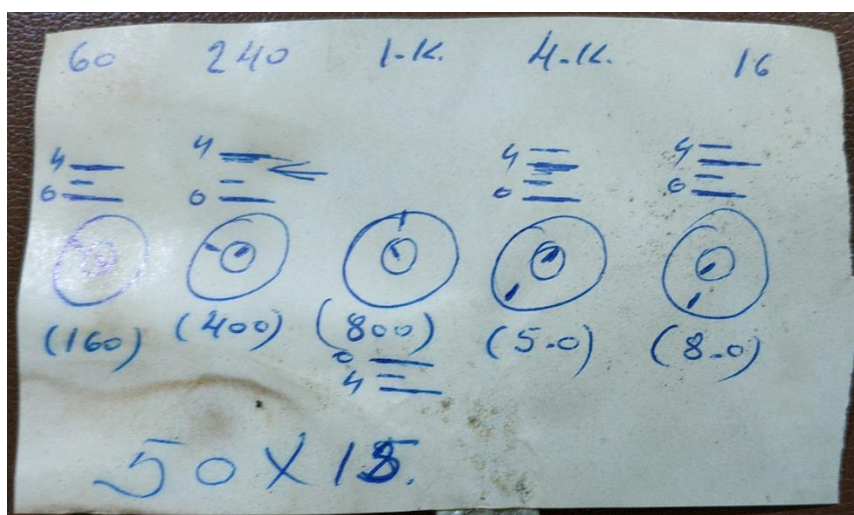 60 240 1-K. 4-K. 16
4 4 4 4
0 0 0 0
(160) (400) (800) (5-0) (8-0)
0
4
50 X 15.